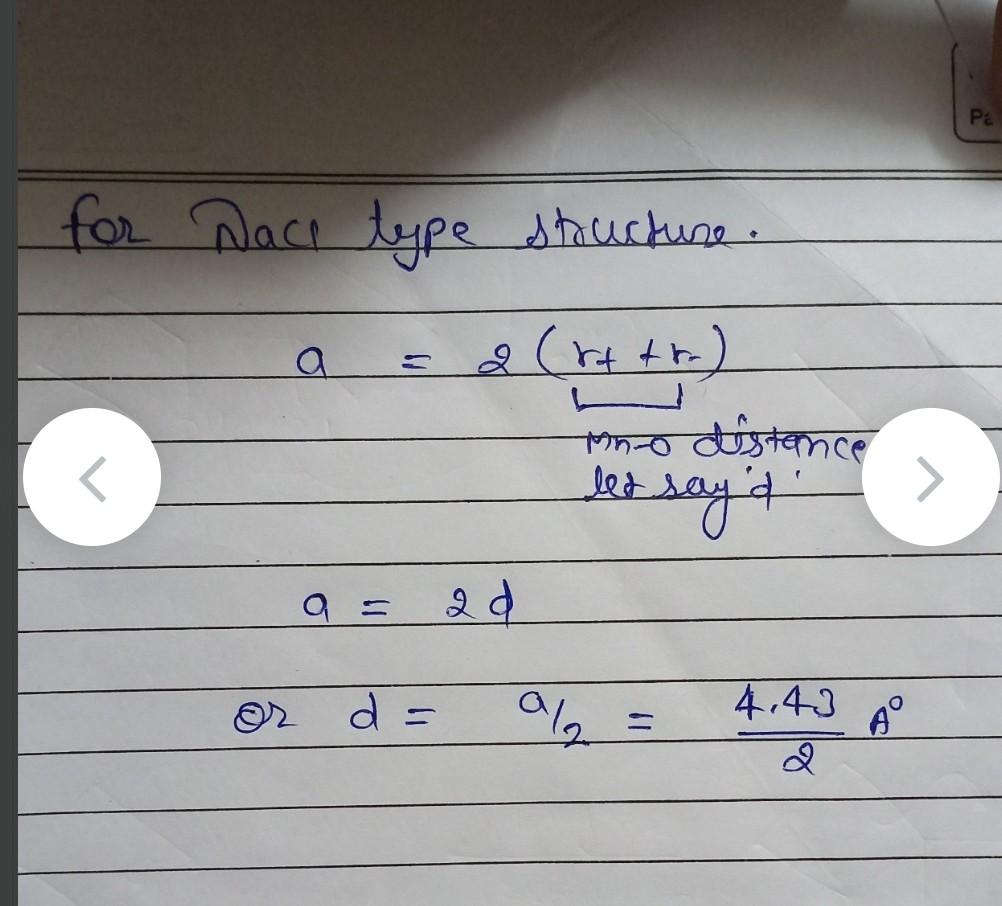 Pa
for NaCl type structure.
a = 2 (r+ + r-)
Mn-O distance
let say 'd'
a = 2d
or d = a/2 = 4.43/2 A°